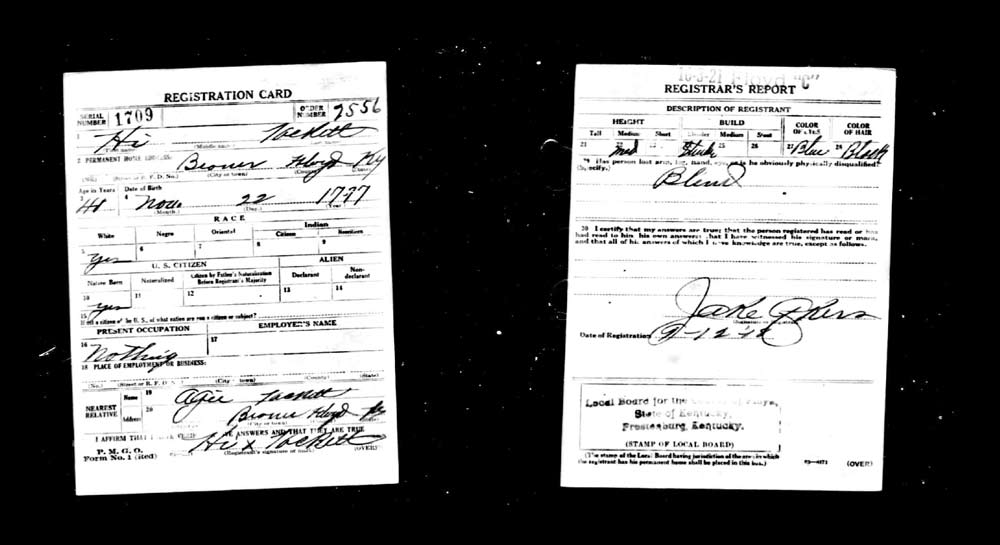 REGISTRATION CARD
SERIAL NUMBER 1709 ORDER NUMBER 2556
1 Hi Tackett
(First name) (Middle name) (Last name)
2 PERMANENT HOME ADDRESS:
Floyd Ky
(No.) (Street or R. F. D. No.) (City or town) (County) (State)
Age in Years Date of Birth
3 41 4 Nov. 22 1877
(Month.) (Day.) (Year.)
RACE
White Negro Oriental Indian
Citizen Noncitizen
5 6 7 8 9
yes
U. S. CITIZEN ALIEN
Native Born Naturalized Citizen by Father's Naturalization Before Registrant's Majority Declarant Non-declarant
10 11 12 13 14
yes
15 If not a citizen of the U. S., of what nation are you a citizen or subject?
PRESENT OCCUPATION EMPLOYER'S NAME
16 Nothing 17
18 PLACE OF EMPLOYMENT OR BUSINESS:
(No.) (Street or R. F. D. No.) (City or town) (County) (State)
NEAREST RELATIVE Name 19 Tackett
Address 20 Floyd Ky
(City or town)
I AFFIRM THAT I HAVE VERIFIED ABOVE ANSWERS AND THAT THEY ARE TRUE
P. M. G. O.
Form No. 1 (Red) Hi x Tackett
(Registrant's signature or mark) (OVER)
16-3-21 Floyd "C"
REGISTRAR'S REPORT
DESCRIPTION OF REGISTRANT
HEIGHT BUILD COLOR OF EYES COLOR OF HAIR
Tall Medium Short Slender Medium Stout
21 22 med 23 24 25 26 27 Blue 28 Black
29 Has person lost arm, leg, hand, eye, or is he obviously physically disqualified?
(Specify.)
Blind
30 I certify that my answers are true; that the person registered has read or has
had read to him his own answers; that I have witnessed his signature or mark,
and that all of his answers of which I have knowledge are true, except as follows:
Jake Akers
(Signature of Registrar)
Date of Registration 9-12-18
Local Board for the County of Floyd,
State of Kentucky,
Prestonsburg, Kentucky.
(STAMP OF LOCAL BOARD)
(The stamp of the Local Board having jurisdiction of the area in which
the registrant has his permanent home shall be placed in this box.)
(OVER)